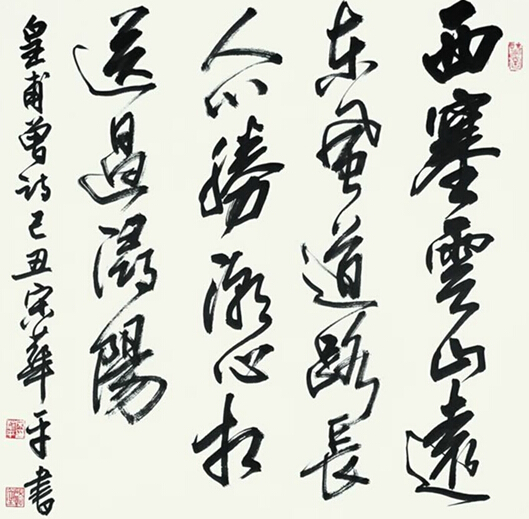 西塞雲山遠
東風道路長
人心勝潮水相
送過潯陽
皇甫曾詩己丑宋華平書